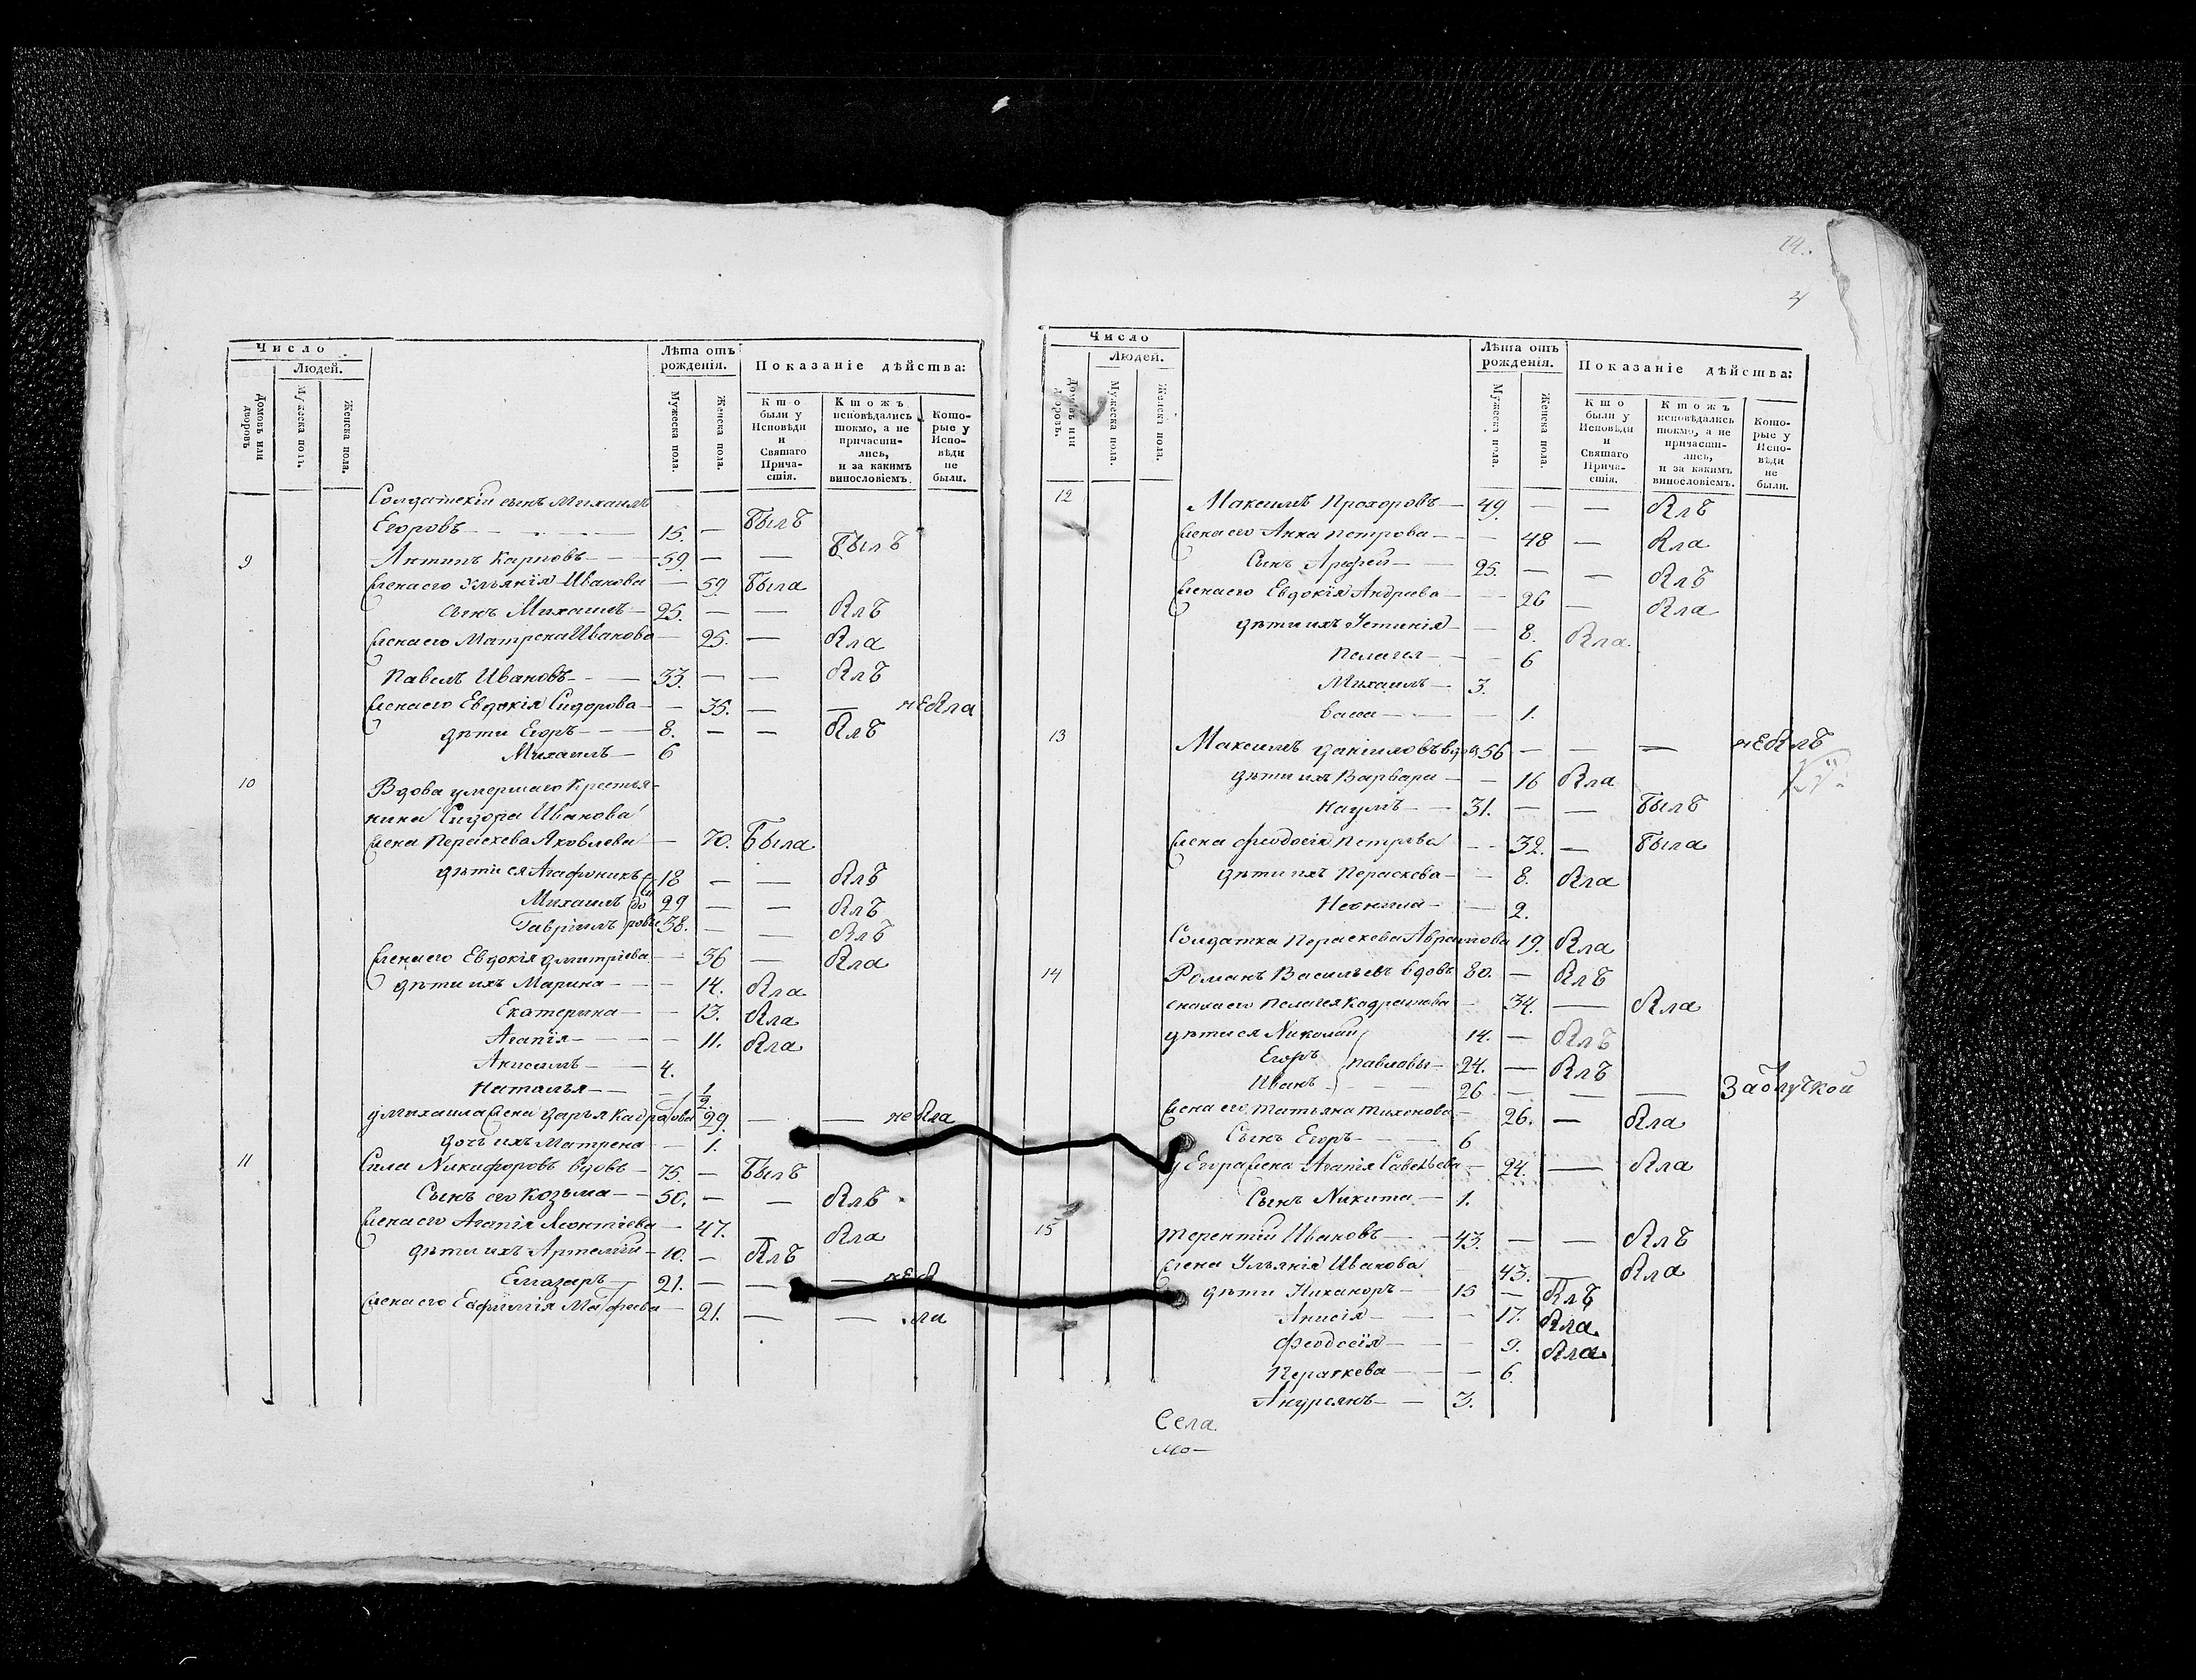 Число
Людей.
Домовъ или дворовъ
Мужеска пола.
Женска пола.
Лѣта отъ рожденія.
Мужеска пола.
Женска пола.
Показаніе дѣйства:
Кто были у Исповѣди и Святаго Причастія.
Ктожъ исповѣдались токмо, а не причастились, и за какимъ винословіемъ.
Которые у Исповѣди не были.
Солдатскій сынъ Михаилъ
Егоровъ — 15. — Былъ
9 Антипъ Карповъ — 59. — — Былъ
Жена его Ульянія Иванова — 59 Была
сынъ Михаилъ — 25. — — Блъ
Жена его Матрена Иванова — 25. — Бла
Павелъ Ивановъ — 33. — — Блъ
Жена его Евдокія Сидорова — 35. — — не Бла
дѣти Егоръ — 8. — — Блъ
Михаилъ — 6
10 Вдова умершаго Крестья-
нина Сидора Иванова
Жена Пераскева Яковлева — 70. Была
дѣти ея Агафоникъ 18 — — Блъ
Михаилъ 29 — — Блъ
Гавріилъ 38. — — Блъ
Сидоровы
Жена его Евдокія Дмитріева — 36 — Бла
дѣти ихъ Марина — 14. Бла
Екатерина — 13. Бла
Агапія — 11. Бла
Анисимъ — 4.
Наталья — 1/2
у Михаила Жена Дарья — 29. — — не Бла
дочь ихъ Матрена — 1.
11 Сила Никифоровъ вдовъ — 75. — Былъ
Сынъ его Козьма — 50. — — Блъ
Жена его Агапія Леонтіева — 47. — Бла
дѣти ихъ Артемій — 10. — Блъ
Елиазаръ — 21. — — —
Жена его Евфимія — 21. — — ла
24.
Число
Людей.
Домовъ или дворовъ.
Мужеска пола.
Женска пола.
Лѣта отъ рожденія.
Мужеска пола.
Женска пола.
Показаніе дѣйства:
Кто были у Исповѣди и Святаго Причастія.
Ктожъ исповѣдались токмо, а не причастились, и за какимъ винословіемъ.
Которые у Исповѣди не были.
12 Максимъ Прохоровъ — 49. — — Блъ
Жена его Анна Петрова — 48 — Бла
Сынъ Арефей — 25. — — Блъ
Жена его Евдокія Андреева — 26 — Бла
дѣти ихъ Устинія — 8. Бла
Пелагея — 6
Михаилъ — 3.
— 1.
13 Максимъ Даніиловъ вдов 56 — — — не Блъ
дѣти ихъ Варвара — 16 Бла
Наумъ — 31. — — Былъ
Жена Феодосія Петрова — 32. — Была
дѣти ихъ Пераскева — 8. Бла
Неонила — 2.
Солдатка Пераскева 19. Бла
14 Романъ Васильевъ вдовъ 80. — Блъ
сноха его Пелагея — 34. — Бла
дѣти ея Николай 14. — Блъ
Егоръ Павловы — 24. — Блъ
Иванъ — 26 — — — За отлучкой
Жена его Татьяна Тихонова — 26. — Бла
Сынъ Егоръ — 6
у Егора Жена Агапія Савельева — 24. — Бла
Сынъ Никита — 1.
15 Терентій Ивановъ — 43. — — Блъ
Жена Ульянія Иванова 43. — Бла
дѣти Никаноръ — 15 — Блъ
Анисія — 17. Бла
Феодосія — 9. Бла
Пераскева — 6.
Андреянъ — 3.
Села